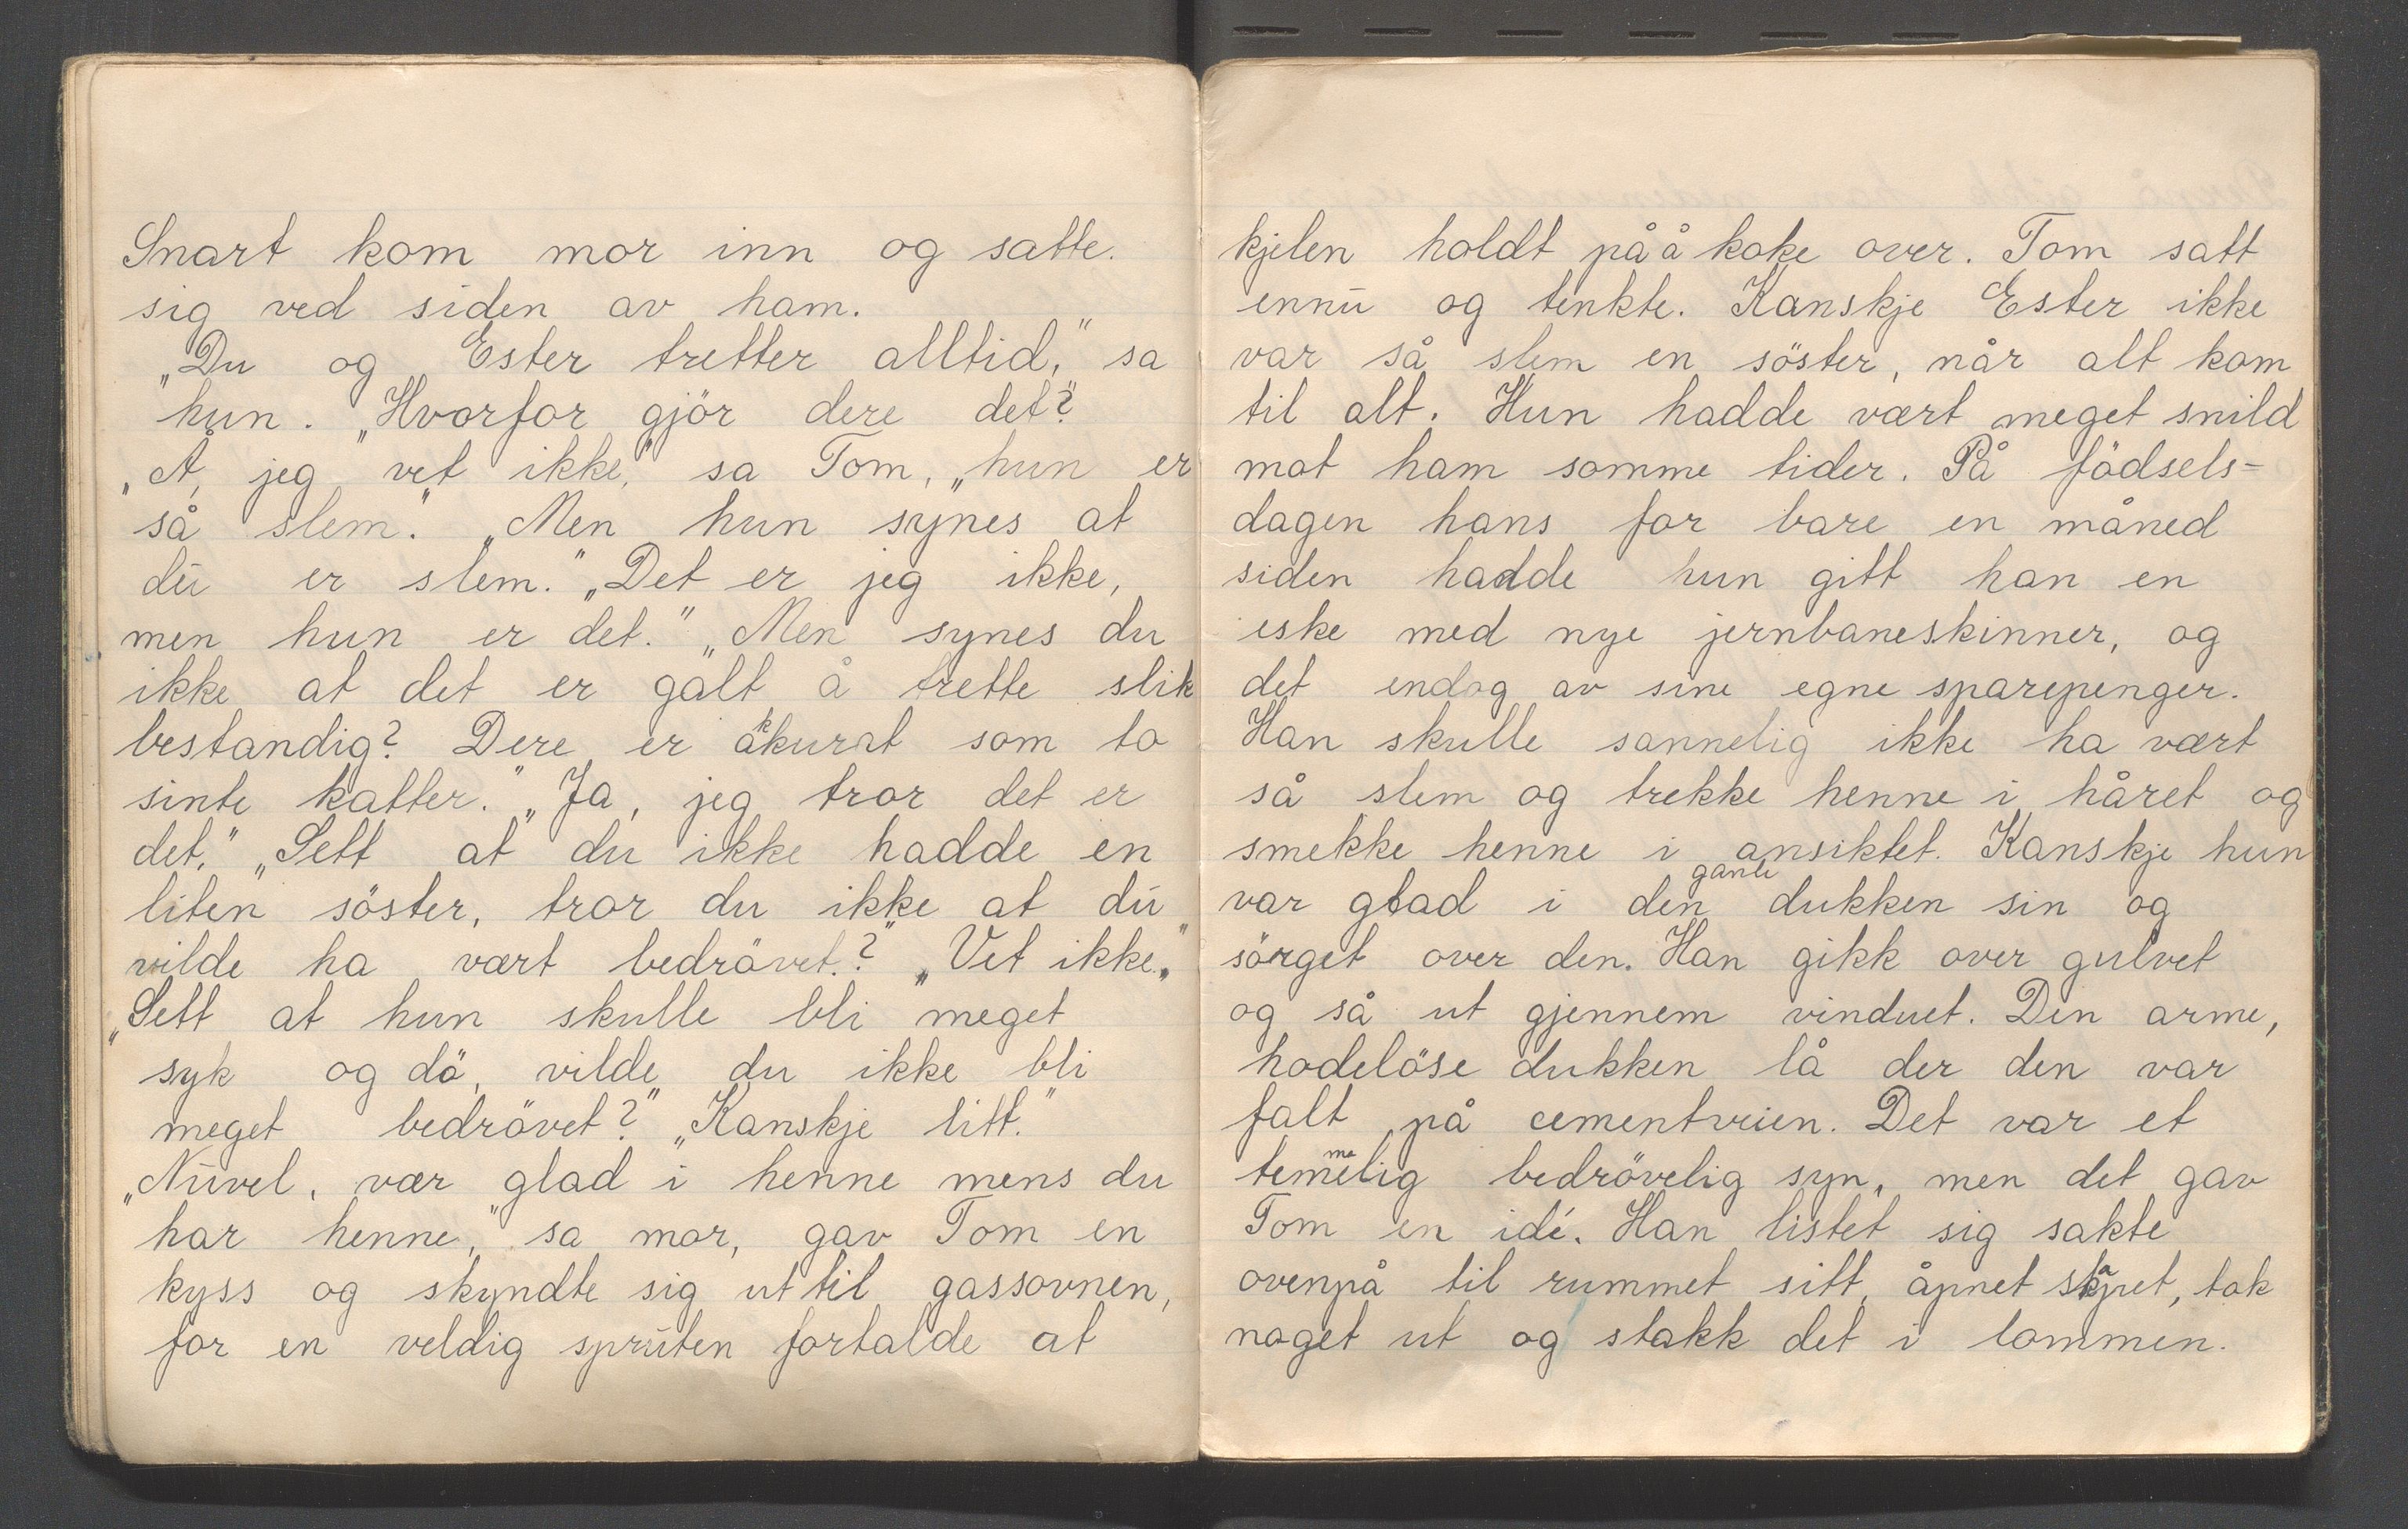 Snart kom mor inn og satte.
sig ved siden av ham.
„Du og Ester tretter alltid," sa
hun. „Hvorfor gjör dere det?"
„Å, jeg vet ikke," sa Tom, „hun er
så slem." „Men hun synes at
du er slem." „Det er jeg ikke,
men hun er det." „Men synes du
ikke at det er galt å trette slik
bestandig? Dere er akkurat som to
sinte katter." „Ja, jeg tror det er
det." „Sett at du ikke hadde en
liten söster, tror du ikke at du
vilde ha vært bedrövet?" „Vet ikke."
„Sett at hun skulle bli meget
syk og dö, vilde du ikke bli
meget bedrövet?" „Kanskje litt."
„Nuvel, vær glad i henne mens du
har henne," sa mor, gav Tom en
kyss og skyndte sig ut til gassovnen,
for en veldig spruten fortalde at
kjelen holdt på å koke over. Tom satt
ennu og tenkte. Kanskje Ester ikke
var så slem en söster, når alt kom
til alt. Hun hadde vært meget snild
mot ham somme tider. På födsels-
dagen hans for bare en måned
siden hadde hun gitt han en
eske med nye jernbaneskinner, og
det endog av sine egne sparepenger.
Han skulle sannelig ikke ha vært
så slem og trekke henne i håret og
smekke henne i ansiktet. Kanskje hun
var glad i den gamle dukken sin og
sörget over den. Han gikk over gulvet
og så ut gjennem vinduet. Den arme,
hodelöse dukken lå der den var
falt på cementveien. Det var et
temmelig bedrövelig syn, men det gav
Tom en idé. Han listet sig sakte
ovenpå til rummet sitt, åpnet skapet, tok
noget ut og stakk det i lommen.